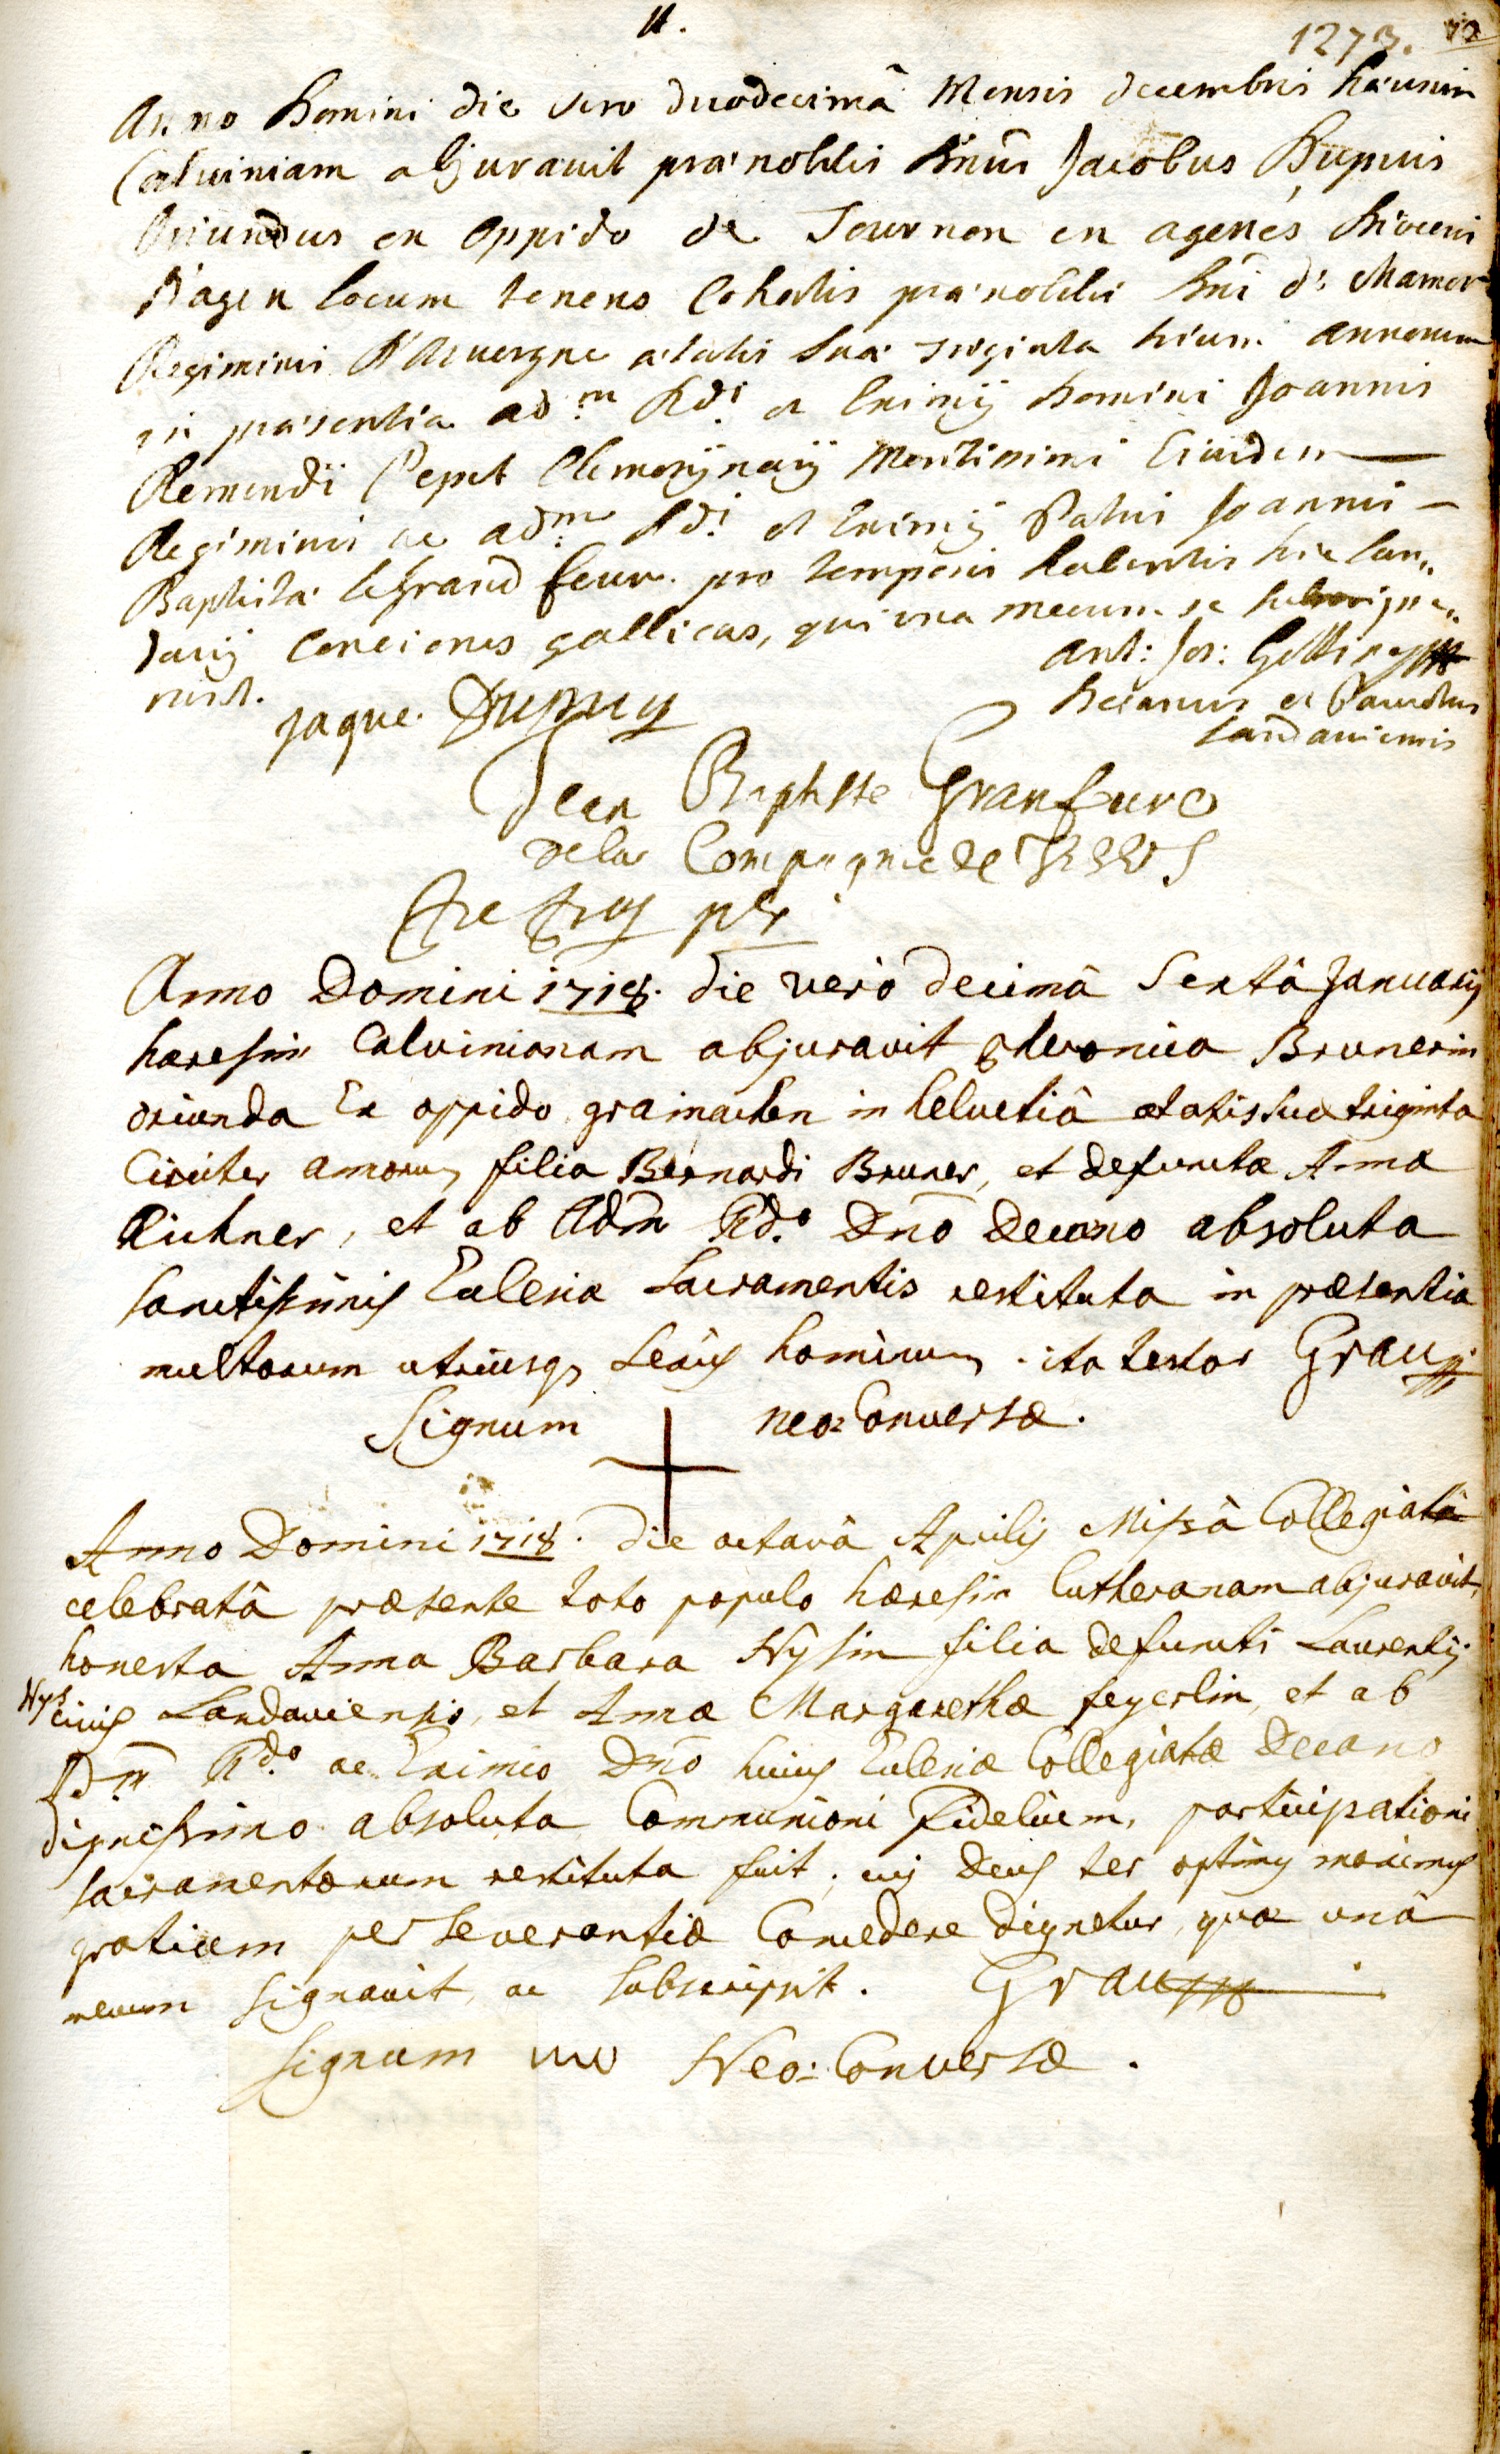 11.
1273. 72
Anno Domini die vero duodecimâ Mensis decembris hæresim
Calviniam abjuravit prænobilis Dnūs Jacobus Dupuis
Oriundus ex Oppido de Tournon en agenés Diœcesis
D'agen locum tenens Cohortis prænobilis Dnī de Mamer
Regiminis D'Auvergne ætatis suæ triginta trium annorum
in præsentia adm Rdi et Eximij Domini Joannis
Remundi Pepet Elemosynarij Meritissimi Eiusdem
Regiminis ac adm Rdi et Eximij Patris Joannis
Baptistæ le grand feuv. pro temporis habentis hic Lan„
davij Conciones gallicas, qui una mecum se subsigna„
runt.
Ant: Jos:
Decanus et Parochus
Landaviensis
Jaque. Dupuy
Jean Baptiste Granfeuve
de la Compagnie de JESUS
Anno Domini 1718. die vero decimâ Sextâ Januarij
hæresim Calvinianam abjuravit Veronica Brunerin
oriunda Ex oppido grainachen in helvetiâ ætatis suæ triginta
Circiter annorum filia Bernardi Bruner, et defunctæ Annæ
Richner, et ab Adm Rdo Dnō Decano absoluta
Sanctissimis Ecclesiæ Sacramentis restituta in præsentia
multorum utriusq3 sexus hominum. ita testor Grau
Signum + neo=Conversæ.
Anno Domini 1718. die octavâ Aprilis Missâ Collegiatâ
celebratâ præsente toto populo hæresin lutheranam abjuravit,
honesta Anna Barbara Nysin filia defuncti Laurentij
Nys
civis Landaviensis, et Annæ Margarethæ feyerlin, et ab
Adm Rdo ac Eximio Dnō huius Ecclesiæ Collegiatæ Decano
dignissimo absoluta Communioni Fidelium, participationi
sacramentorum restituta fuit, cui Deus ter optimus maximus
gratiam perseverantiæ Concedere dignetur, quæ unâ
mecum signavit, ac subscripsit. Grau
Signum Neo=Conversæ.